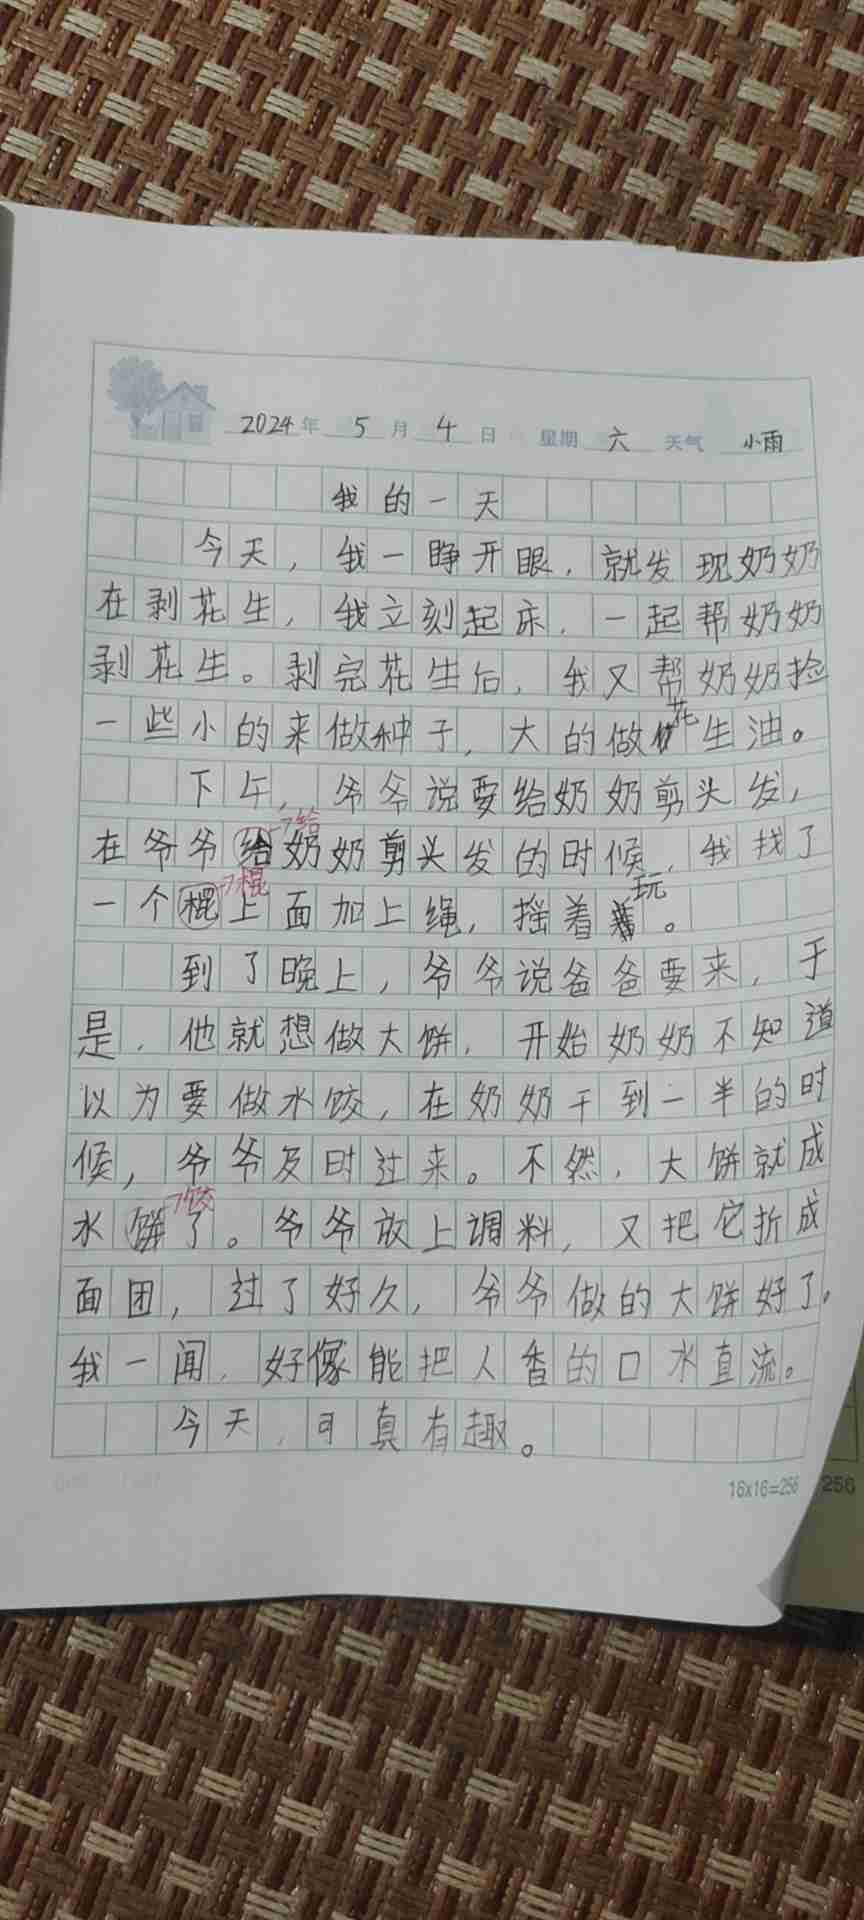 2024年 5月 4日 星期六 天气 小雨
我的一天
今天，我一睁开眼，就发现奶奶
在剥花生，我立刻起床，一起帮奶奶
剥花生。剥完花生后，我又帮奶奶捡
一些小的来做种子，大的做花生油。
下午，爷爷说要给奶奶剪头发，
→给
在爷爷给奶奶剪头发的时候，我找了
→棍
一个棍上面加上绳，摇着玩。
到了晚上，爷爷说爸爸要来，于
是，他就想做大饼，开始奶奶不知道
以为要做水饺，在奶奶干到一半的时
候，爷爷及时过来。不然，大饼就成
→饺
水饼了。爷爷放上调料，又把它折成
面团，过了好久，爷爷做的大饼好了。
我一闻，好像能把人香的口水直流。
今天，可真有趣。
16x16=256
256